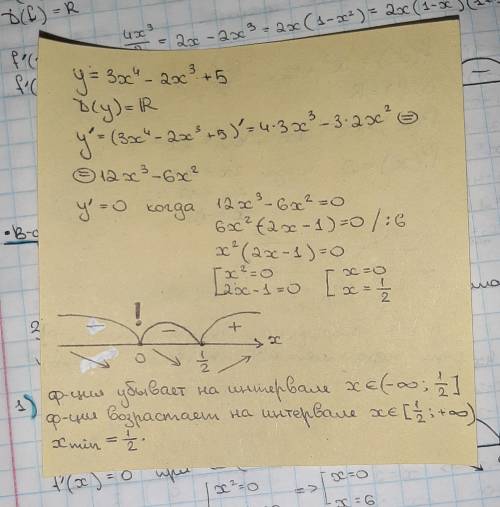 D(f) = R
4x³ = 2x - 2x³ = 2x(1-x²) = 2x(1-x)(1
f'(
f'(
y = 3x⁴ - 2x³ + 5
D(y) = R
y' = (3x⁴ - 2x³ + 5)' = 4·3x³ - 3·2x² =
= 12x³ - 6x²
y' = 0 когда 12x³ - 6x² = 0
6x²(2x - 1) = 0 / :6
x²(2x - 1) = 0
[x² = 0 [x = 0
2x - 1 = 0 x = 1/2
! - - + x
0 1/2
ф-ция убывает на интервале x∈(-∞; 1/2]
1) ф-ция возрастает на интервале x∈[1/2; +∞)
xmin = 1/2.
f'(x) = 0 при
[x² = 0 => [x = 0
x = 6